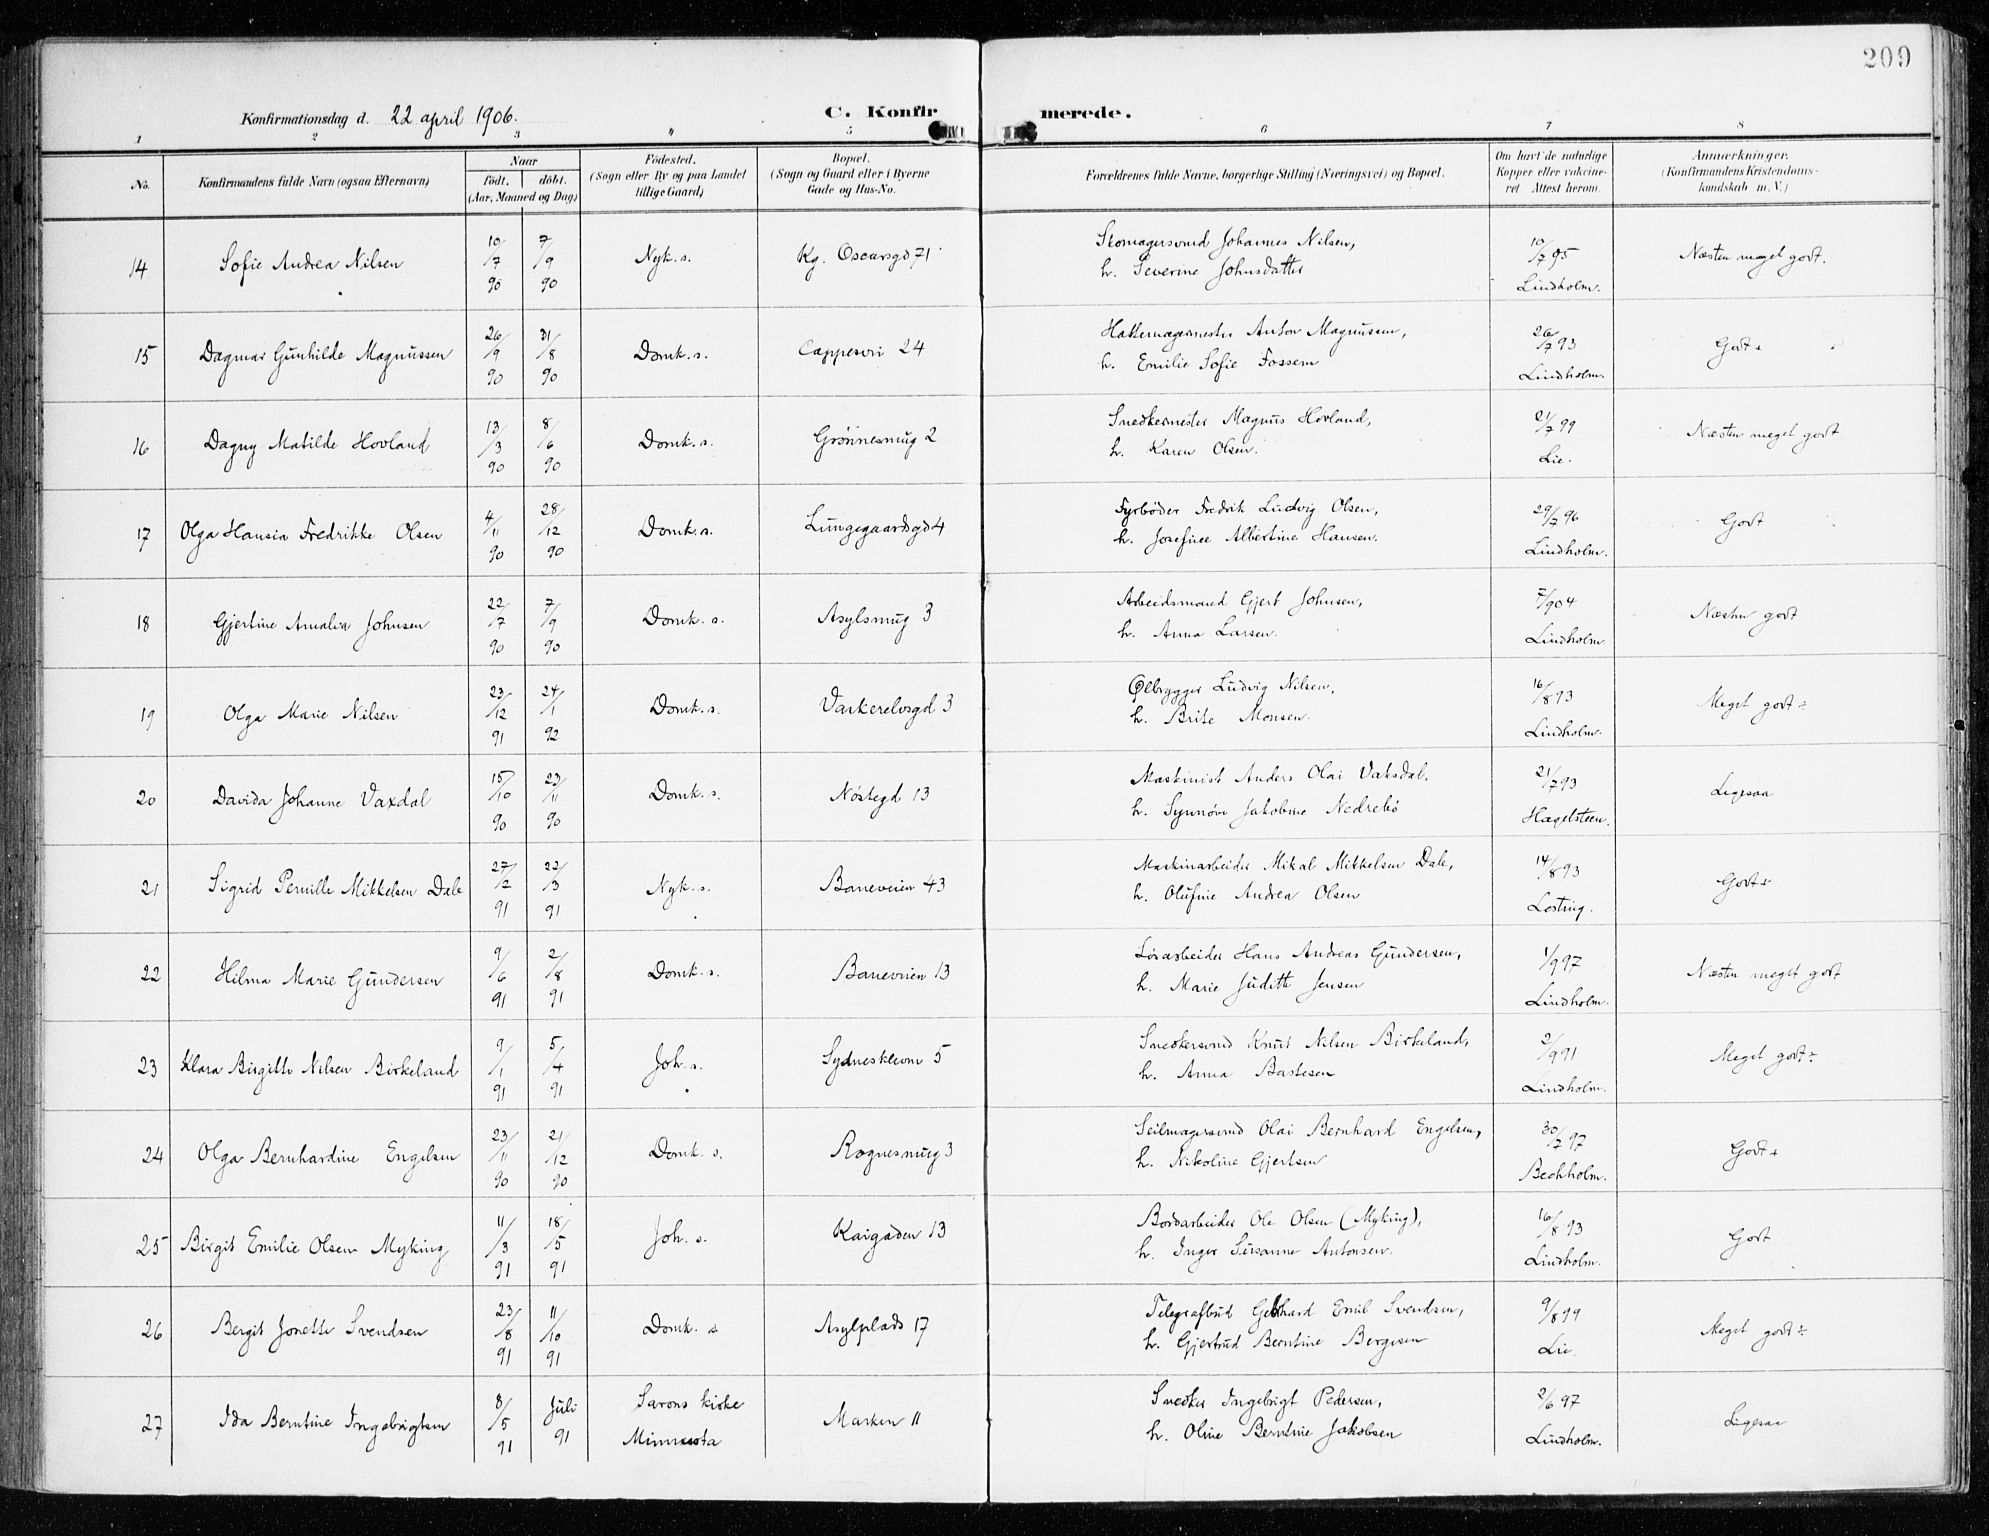 209
Konfirmationsdag d. 22 april 1906. C. Konfirmerede.
1 2 3 4 5 6 7 8
No. Konfirmandens fulde Navn (ogsaa Efternavn) Naar födt. döbt. (Aar, Maaned og Dag) Födested. (Sogn eller By og paa Landet tillige Gaard) Bopæl. (Sogn og Gaard eller i Byerne Gade og Hus-No. Forældrenes fulde Navne, borgerlige Stilling (Næringsvei) og Bopæl. Om havt de naturlige Kopper eller vakcineret Attest herom. Anmærkninger. (Konfirmandens Kristendomskundskab m. V.)
14 Sofie Andrea Nilsen 10/7 90 7/9 90 Nyk. s. Kg. Oscarsgd 71 Skomagersvend Johannes Nilsen, h. Severine Johnsdatter 10/7 95 Lindholm. Næsten meget godt.
15 Dagmar Gunhilde Magnussen 26/9 90 31/8 90 Domk. s. Cappesvei 24 Hattemagermester Anton Magnussen, h. Emilie Sofie Fossem 26/7 93 Lindholm. Godt+
16 Dagny Matilde Hovland 13/3 90 8/6 90 Domk. s. Grönnesmug 2 Snedkermester Magnus Hovland, h. Karen Olsen. 21/7 99 Lie. Næsten meget godt
17 Olga Hansia Fredrikke Olsen 4/11 90 28/12 90 Domk. s. Lungegaardsgd 4 Fyrböder Fredrik Ludvig Olsen, h. Josefine Albertine Hansen. 29/7 96 Lindholm. Godt
18 Gjertine Amalia Johnsen 22/7 90 7/9 90 Domk. s. Asylsmug 3 Arbeidsmand Gjert Johnsen, h. Anna Larsen. 7/904 Lindholm. Næsten godt
19 Olga Marie Nilsen 23/12 91 24/1 92 Domk. s. Vaskerelvsgd 3 Ölbrygger Ludvig Nilsen, h. Brite Monsen. 16/8 93 Lindholm. Meget godt ÷
20 Davida Johanne Vaxdal 15/10 90 23/11 90 Domk. s. Nöstegd 13 Maskinist Anders Olai Vaksdal, h. Synnöve Jakobine Nedrebö 21/7 93 Hagelsteen. Ligesaa
21 Sigrid Pernille Mikkelsen Dale 27/2 91 22/3 91 Nyk. s. Baneveien 43 Maskinarbeider Mikal Mikkelsen Dale, h. Olufine Andrea Olsen 14/8 93 Losting. Godt+
22 Hilma Marie Gundersen 9/6 91 2/8 91 Domk. s. Baneveien 13 Lösarbeider Hans Andreas Gundersen, h. Marie Judith Jensen 1/9 97 Lindholm. Næsten meget godt
23 Klara Birgitte Nilsen Birkeland 9/1 91 5/4 91 Joh. s. Sydneskleven 5 Snedkersvend Knut Nilsen Birkeland, h. Anna Bastesen 2/9 91 Lindholm. Meget godt ÷
24 Olga Bernhardine Engelsen 23/11 90 21/12 90 Domk. s. Rognesmug 3 Seilmagersvend Olai Bernhard Engelsen, h. Nikoline Gjertsen 30/7 97 Bechholm. Godt+
25 Birgit Emilie Olsen Myking 11/3 91 18/5 91 Joh. s. Kaigaden 13 Bordarbeider Ole Olsen (Myking), h. Inger Susanne Antonsen. 16/8 93 Lindholm. Godt
26 Bergit Jonette Svendsen 23/8 91 11/10 91 Domk. s Asylplads 17 Telegrafbud Gebhard Emil Svendsen, h. Gjertrud Berntine Bergesen 9/8 99 Lie. Meget godt ÷
27 Ida Berntine Ingebrigtsen 8/5 91 Juli 91 Sarons kirke Minnesota Marken 11 Snedker Ingebrigt Pedersen, h. Oline Berntine Jakobsen 2/6 97 Lindholm. Ligesaa